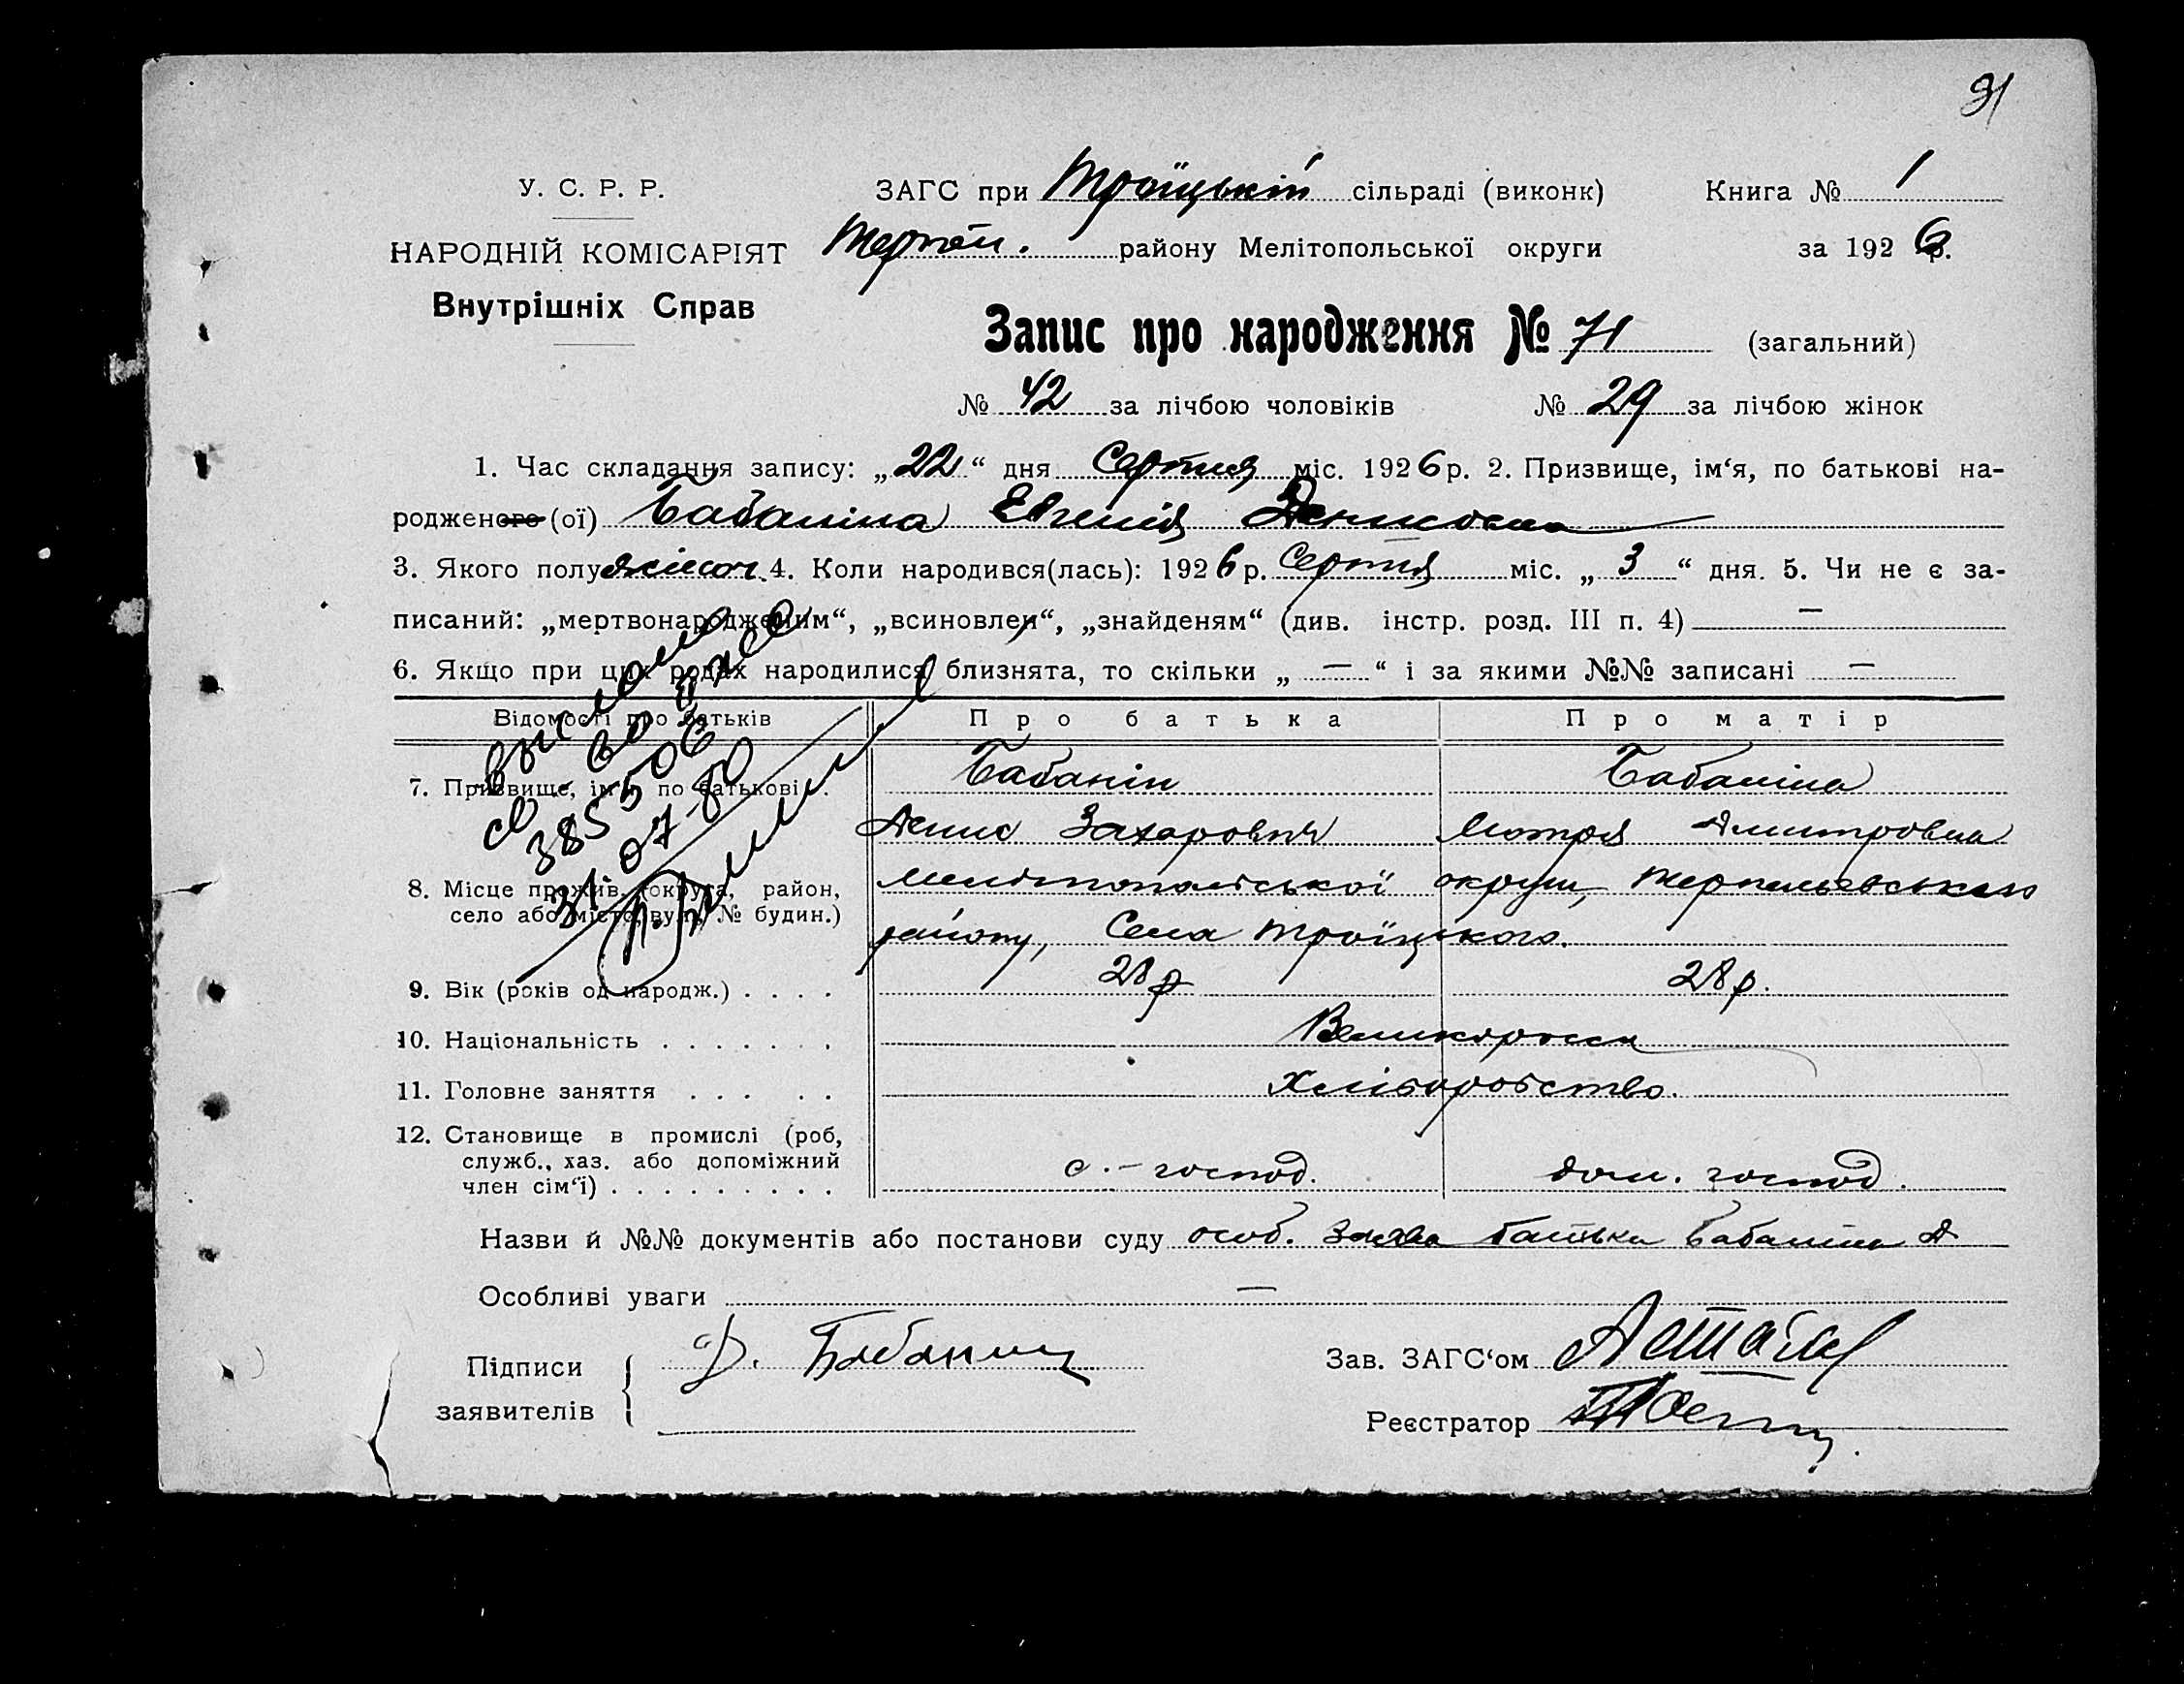 91
У. С. Р. Р.
НАРОДНІЙ КОМІСАРІЯТ
Внутрішніх Справ
ЗАГС при Троїцькій сільраді (виконк) Книга № 1
Терпен. району Мелітопольської округи за 1926 р.
Запис про народження № 71 (загальний)
№ 42 за лічбою чоловіків № 29 за лічбою жінок
1. Час складання запису: „22“ дня Серпня міс. 1926 р. 2. Призвище, ім‘я, по батькові на-
родженого (ої) Бабаніна Евгенія Денисовна
3. Якого полу жіноч. 4. Коли народився(лась): 1926 р. Серпня міс. „3“ дня. 5. Чи не є за-
писаний: „мертвонародженим“, „всиновлен“, „знайденям“ (див. інстр. розд. III п. 4) —
6. Якщо при цих родах народилися близнята, то скільки „ — “ і за якими №№ записані —
Відомості про батьків Про батька Про матір
7. Призвище, ім‘я, по батькові . . Бабанін Бабаніна
Денис Захарович Мотря Дмитровна
8. Місце прожив. (округа, район, Мелітопольської округи, Терпеньевського
село або місто, вул., № будин.) району, Села Троїцького.
9. Вік (років од народж.) . . . . 28 р 28 р.
10. Національність . . . . . . . Великоросси
11. Головне заняття . . . . . Хліборобство.
12. Становище в промислі (роб,
служб., хаз. або допоміжний
член сім‘ї) . . . . . . . . . с.-господ. дом. господ.
выслано
св. во
385506
31 07-80
Назви й №№ документів або постанови суду особ. заява батька Бабаніна Д
Особливі уваги —
Підписи
заявителів
Д. Бабанин
Зав. ЗАГС‘ом
Реєстратор